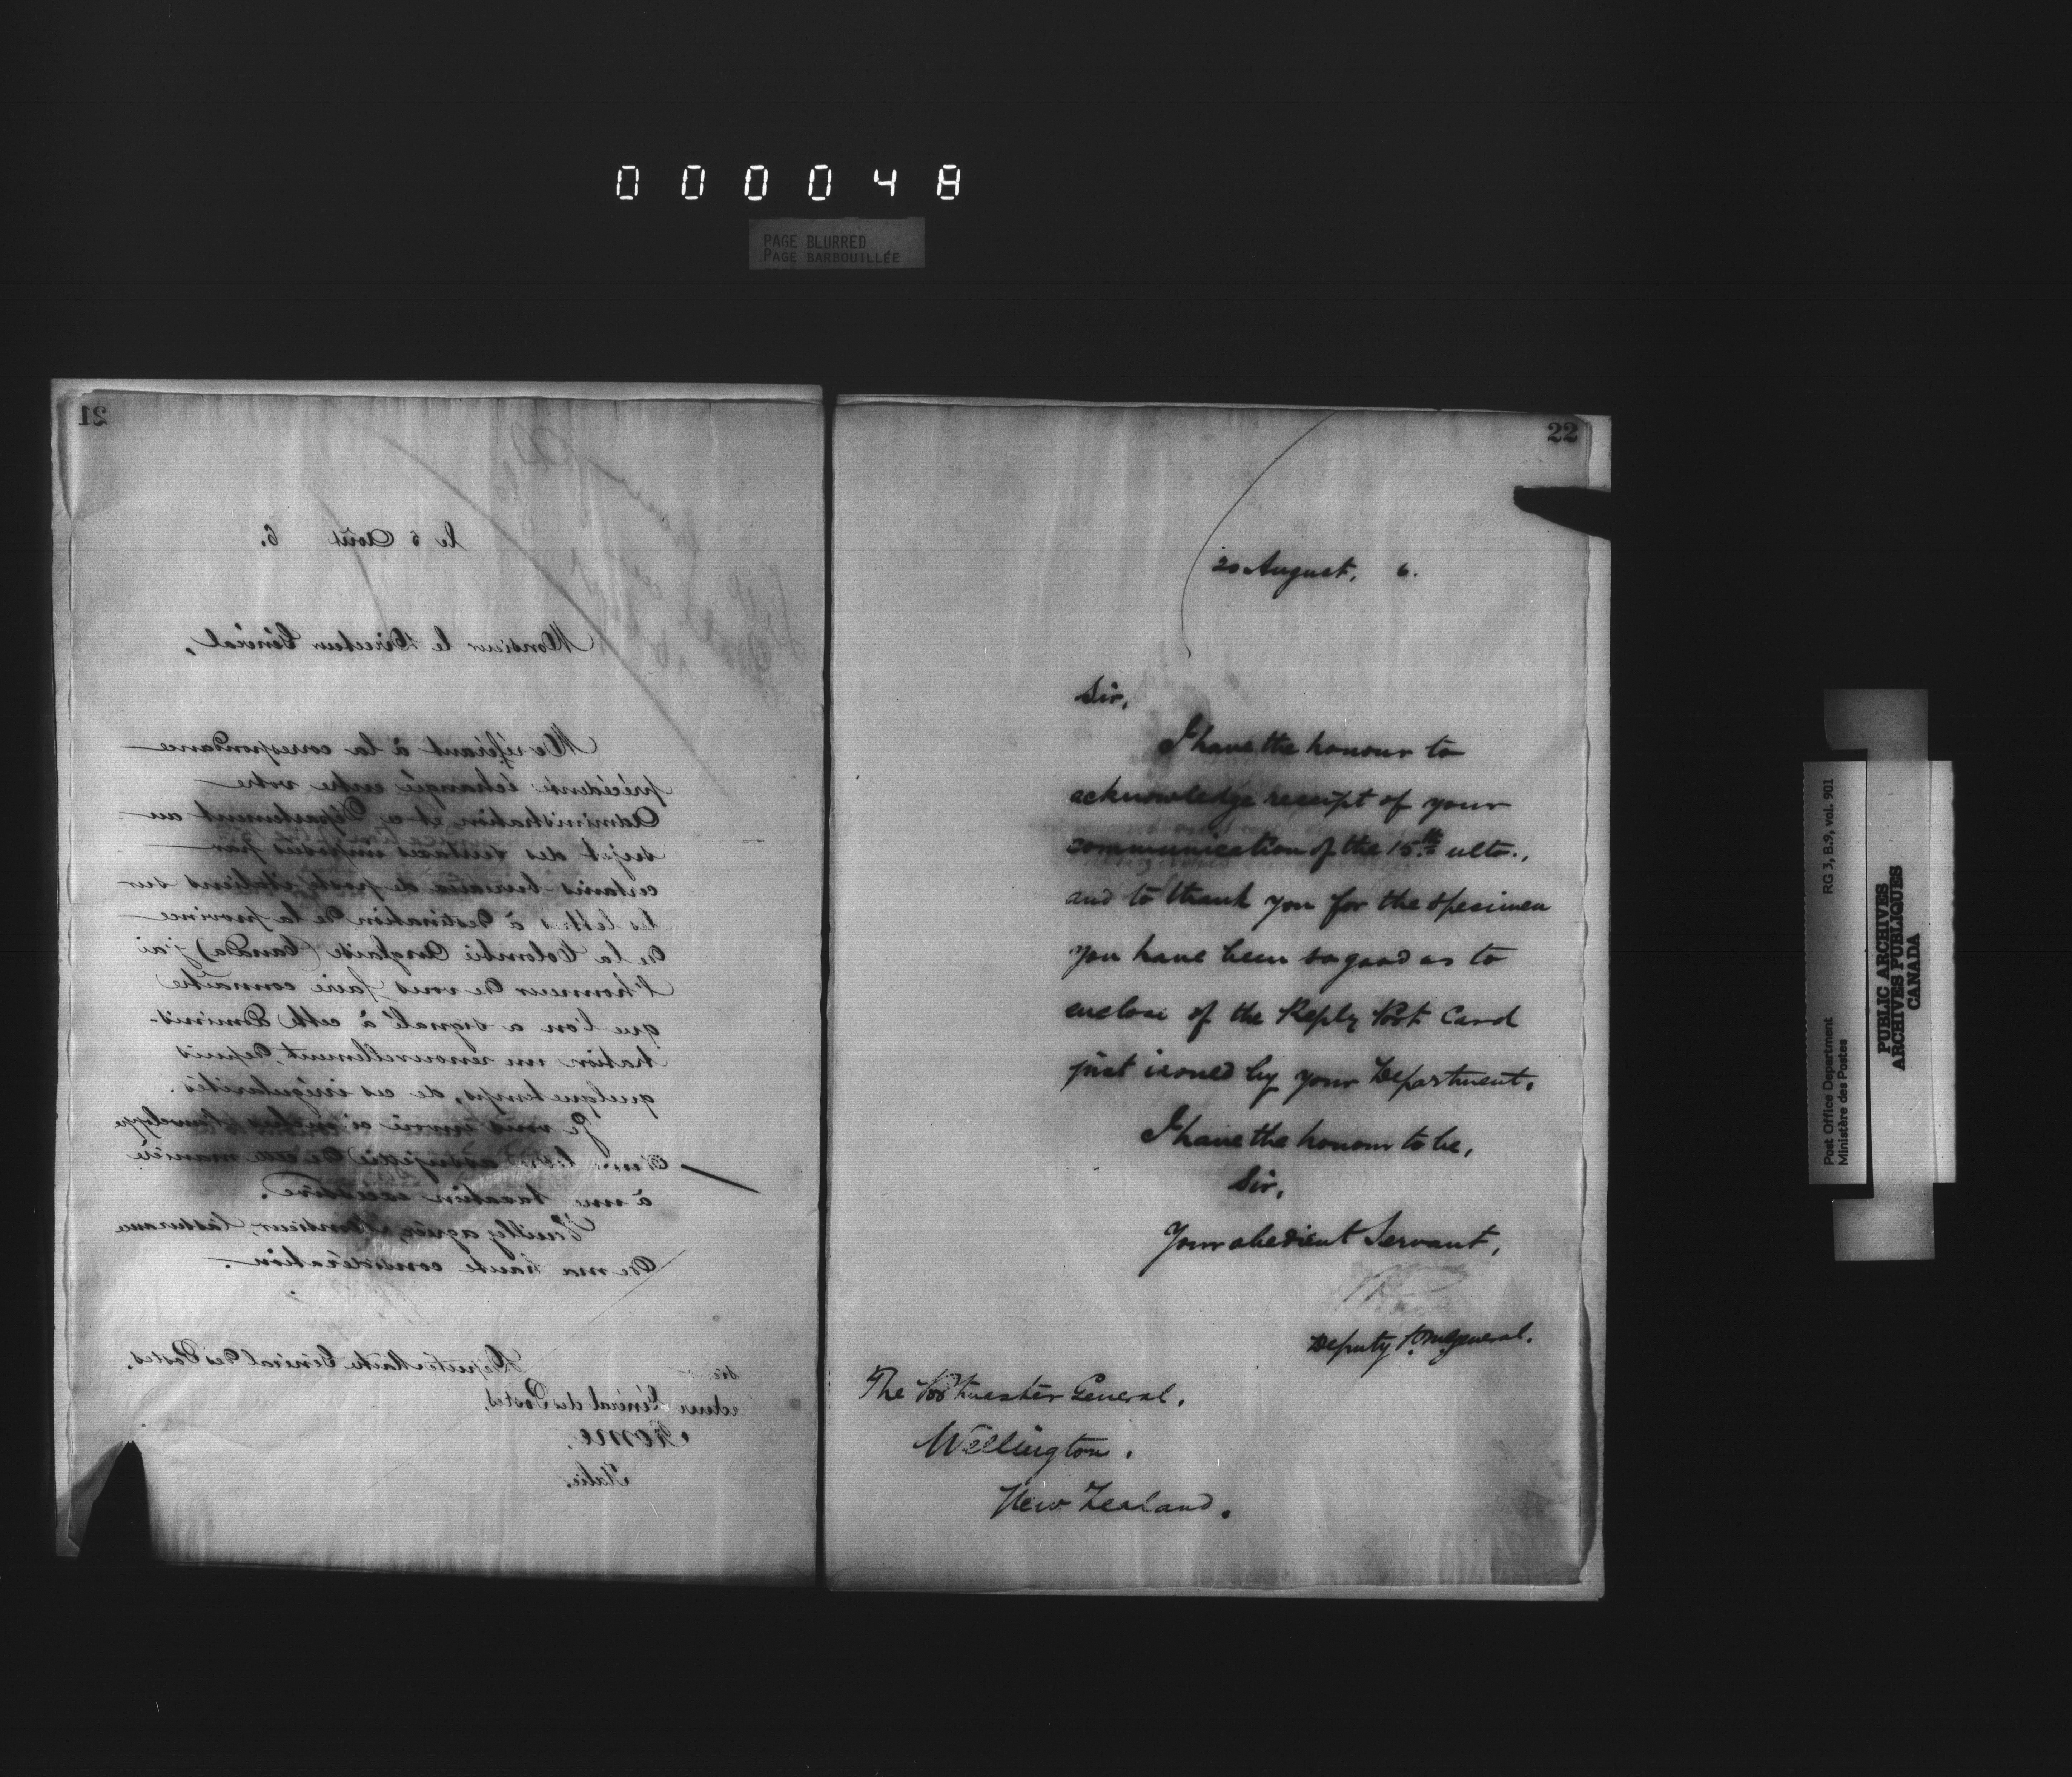 000048
PAGE BLURRED
PAGE BARBOUILLÉE
21
le 6 Août 6.
Monsieur le Directeur Général,
Me référant à la correspondance
précédente échangée entre votre
Administration et ce Département au
sujet des surtaxes imposées par
certains bureaux de poste italiens sur
les lettres à destination de la province
de la Colombie Anglaise (Canada) j'ai
l'honneur de vous faire connaître
que l'on a signalé à cette Adminis-
tration un renouvellement, depuis
quelque temps, de ces irrégularités.
Je vous envoie ci-inclus l'enveloppe
d'une lettre assujettie de cette manière
à une taxation excessive.
Veuillez agréer, Monsieur, l'assurance
de ma haute considération.
Député Maître Général des Postes.
ecteur Général des Postes,
Rome,
Italie.
22
20 August, 6.
Sir,
I have the honour to
acknowledge receipt of your
communication of the 15th ulto.,
and to thank you for the specimen
you have been so good as to
enclose of the Reply Post Card
just issued by your Department.
I have the honour to be,
Sir,
Your obedient Servant,
Deputy P.M. General.
The Postmaster General,
Wellington,
New Zealand.
Post Office Department
Ministère des Postes
RG 3, B.9, vol. 901
PUBLIC ARCHIVES
ARCHIVES PUBLIQUES
CANADA